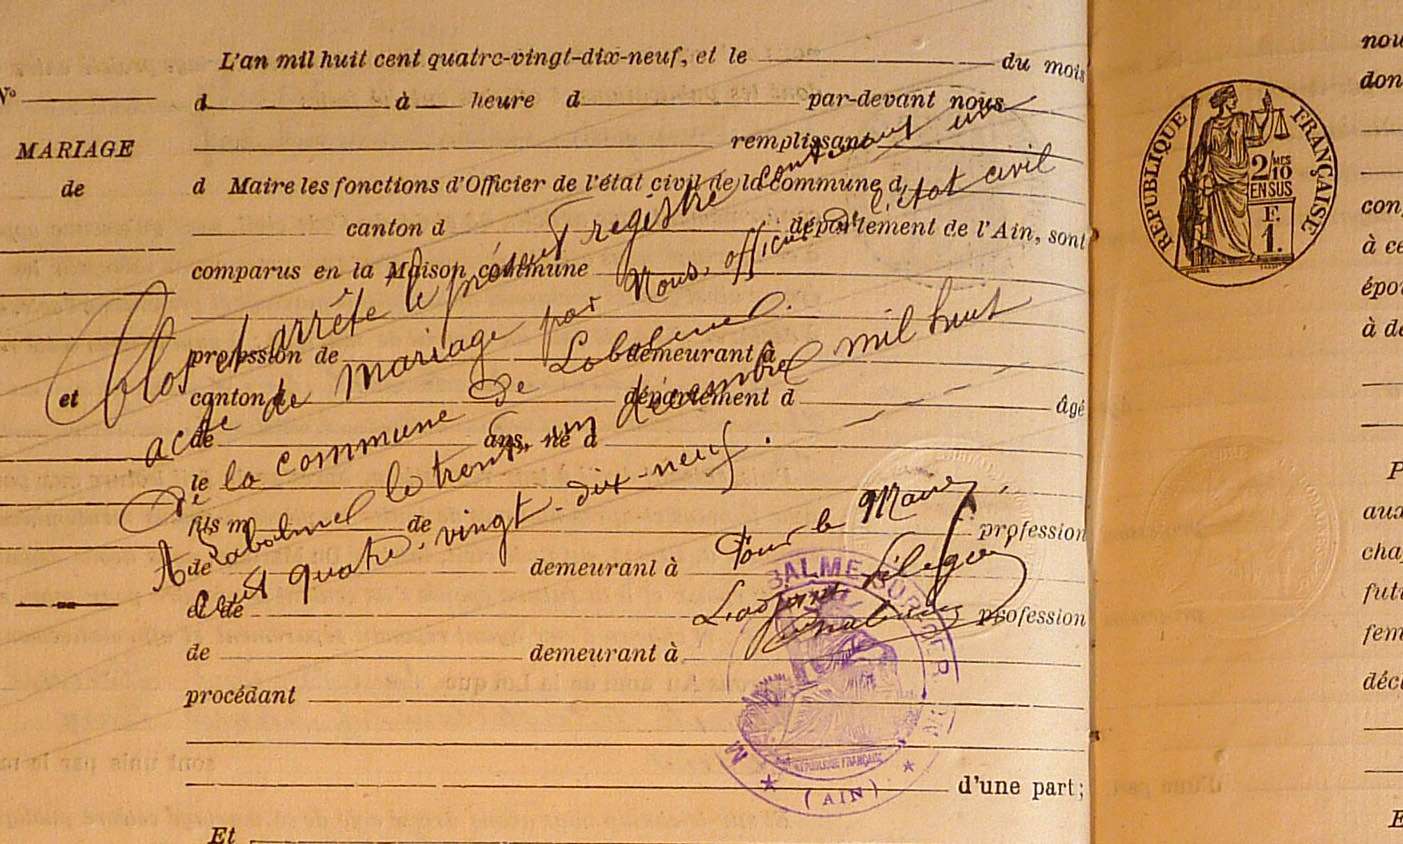 L'an mil huit cent quatre-vingt-dix-neuf, et le du mois
No
d à heure d par-devant nous
MARIAGE
remplissant
de
d Maire les fonctions d'Officier de l'état civil de la commune d
canton d département de l'Ain, sont
comparus en la Maison commune
profession de demeurant à
et
canton d département d âgé
de ans, né d
le
fils m de profession
de demeurant à
et de profession
de demeurant à
procédant
d'une part;
Et
Clos et arrêté le présent registre contenant un
acte de mariage par Nous, officier de l'état civil
de la commune de Labalme.
A Labalme le trente un décembre mil huit
cent quatre-vingt-dix-neuf.
Pour le Maire,
BALME
(AIN)
RÉPUBLIQUE FRANÇAISE
RÉPUBLIQUE FRANÇAISE
2/10
EN SUS
F.
1.
nou
don
con
à ce
épou
à de
P
aux
cha
futu
fem
décl
E